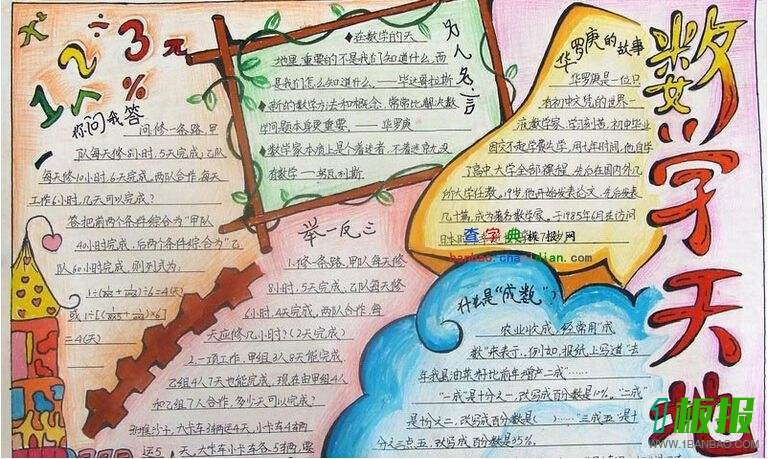 数学天地
x²
÷
1 2 3 元
%
你问我答
问:修一条路,甲
队每天修8小时,5天完成;乙队
每天修10小时,6天完成,两队合作,每天
工作6小时,几天可以完成?
答:把前两个条件综合为“甲队
40小时完成,后两个条件综合为“乙
队60小时完成,则列式为:
1÷[(
)÷6=4(天)
或1÷[(
)×6]
=4(天)
为人名言
◆在数学的天
地里重要的不是我们知道什么,而
是我们怎么知道什么。——毕达哥拉斯
◆新的数学方法和概念,常常比解决数
学问题本身更重要。——华罗庚
◆数学家本质上是个着迷者,不着迷就没
有数学——努瓦列斯
华罗庚的故事
华罗庚是一位只
有初中文凭的世界一
流数学家,学习刻苦,初中毕业
因交不起学费失学,用七年时间,他自学
了高中、大学全部课程,先后在国内外几
所大学任教。19岁,他开始发表论文,先后发表
几十篇,成为著名数学家。于1985年6月在访问
日本时
查字典板报网
banbao.chazidian.com
举一反三
1.修一条路,甲队每天修
8小时,5天完成;乙队每天修
6小时,4天完成,两队合作,每
天应修几小时?(2天完成)
2.一项工作,甲组3人8天能完成
乙组4人7天也能完成,现在由甲组4人
和乙组7人合作,多少天可以完成?
大卡车3辆运4天,小卡车4辆
运5天,大卡车小卡车各5辆,要
什么是“成数”?
农业收成,经常用“成
数”来表示,例如,报纸上写道:“去
年我县油菜籽比前年增产二成”……
“一成”是十分之一,改写成百分数是10%。“二成”
是十分之二,改写成百分数是( )……“三成五”是十
分之三点五,改写成百分数是35%。
1板报
WWW.1BANBAO.COM